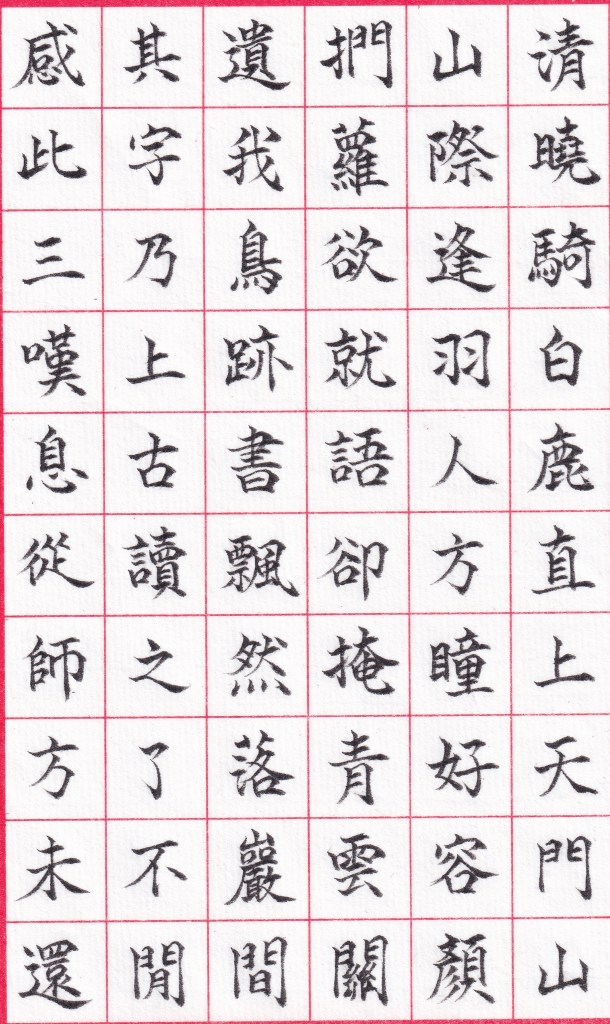 清曉騎白鹿直上天門山
山際逢羽人方瞳好容顏
捫蘿欲就語卻掩青雲關
遺我鳥跡書飄然落巖間
其字乃上古讀之了不閒
感此三嘆息從師方未還